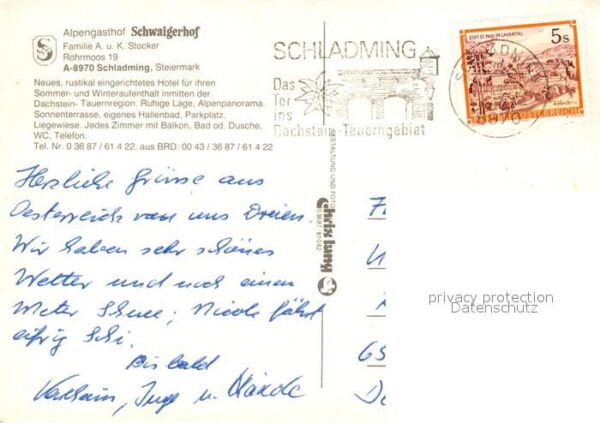 Alpengasthof Schwaigerhof
Familie A. u. K. Stocker
Rohrmoos 19
A-8970 Schladming, Steiermark
Neues, rustikal eingerichtetes Hotel für ihren
Sommer- und Winteraufenthalt inmitten der
Dachstein-Tauernregion. Ruhige Lage, Alpenpanorama.
Sonnenterrasse, eigenes Hallenbad, Parkplatz,
Liegewiese. Jedes Zimmer mit Balkon, Bad od. Dusche,
WC, Telefon.
Tel. Nr. 0 36 87 / 61 4 22, aus BRD: 00 43 / 36 87 / 61 4 22
SCHLADMING
Das
Tor
ins
Dachstein-Tauerngebiet
STIFT ST. PAUL IM LAVANTTAL
5s
REPUBLIK ÖSTERREICH
8970
Herzliche Grüsse aus
Oesterreich von uns Dreien
Wir haben sehr schönes
Wetter und noch einen
Meter Schnee; Nicole fährt
eifrig Ski.
Bis bald
Inge u.
GESTALTUNG UND FOTO
03687 61042
privacy protection
Datenschutz